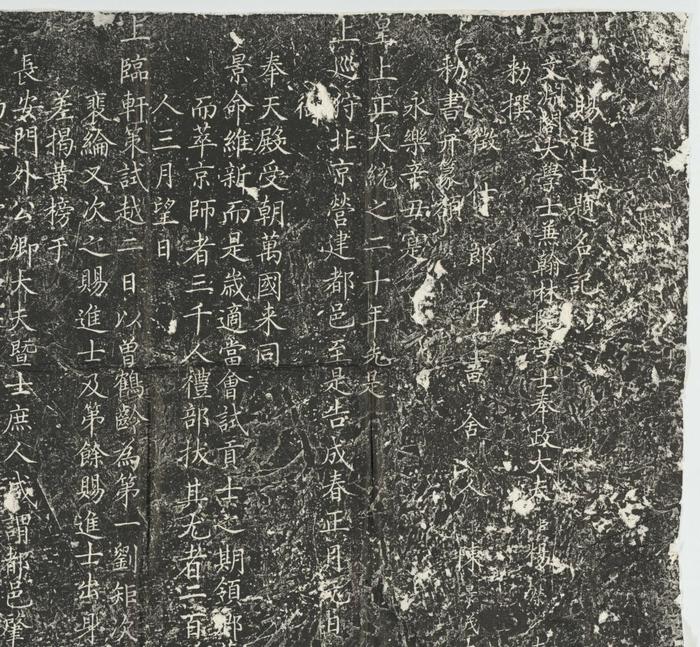 賜進士題名記
文淵閣大學士兼翰林院學士奉政大夫臣楊榮
勑撰
徵仕郎中書舍人臣陳景茂
勑書并篆額
永樂辛丑寔
皇上正大統之二十年先是
上巡狩北京營建都邑至是告成春正月元日
御
奉天殿受朝萬國来同
景命維新而是歲適當會試貢士之期領鄉
而萃京師者三千人禮部拔其尤者二百
人三月望日
上臨軒策試越二日以曾鶴齡為第一劉矩次
裴綸又次之賜進士及第餘賜進士出身
差揭黃榜于
長安門外公卿大夫暨士庶人咸謂都邑肇